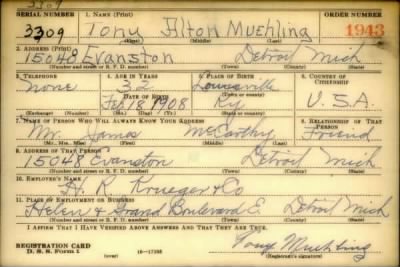 3309
SERIAL NUMBER 1. NAME (Print) ORDER NUMBER
3309 Tony Alton Muehling 1943
(First) (Middle) (Last)
2. ADDRESS (Print)
15048 Evanston Detroit Mich
(Number and street or R. F. D. number) (Town) (County) (State)
3. TELEPHONE 4. AGE IN YEARS 5. PLACE OF BIRTH 6. COUNTRY OF CITIZENSHIP
none 32 Louisville
DATE OF BIRTH
Feb 18 1908 Ky U.S.A.
(Exchange) (Number) (Mo.) (Day) (Yr.) (State or country)
7. NAME OF PERSON WHO WILL ALWAYS KNOW YOUR ADDRESS 8. RELATIONSHIP OF THAT PERSON
Mr. James McCarthy Friend
(Mr., Mrs., Miss) (First) (Middle) (Last)
9. ADDRESS OF THAT PERSON
15048 Evanston Detroit Mich
(Number and street or R. F. D. number) (Town) (County) (State)
10. EMPLOYER'S NAME
H. R. Krueger & Co
11. PLACE OF EMPLOYMENT OR BUSINESS
Helen & Grand Boulevard E. Detroit Mich
(Number and street or R. F. D. number) (Town) (County) (State)
I AFFIRM THAT I HAVE VERIFIED ABOVE ANSWERS AND THAT THEY ARE TRUE.
REGISTRATION CARD
D. S. S. Form 1 (over) Tony Muehling
(Registrant's signature)